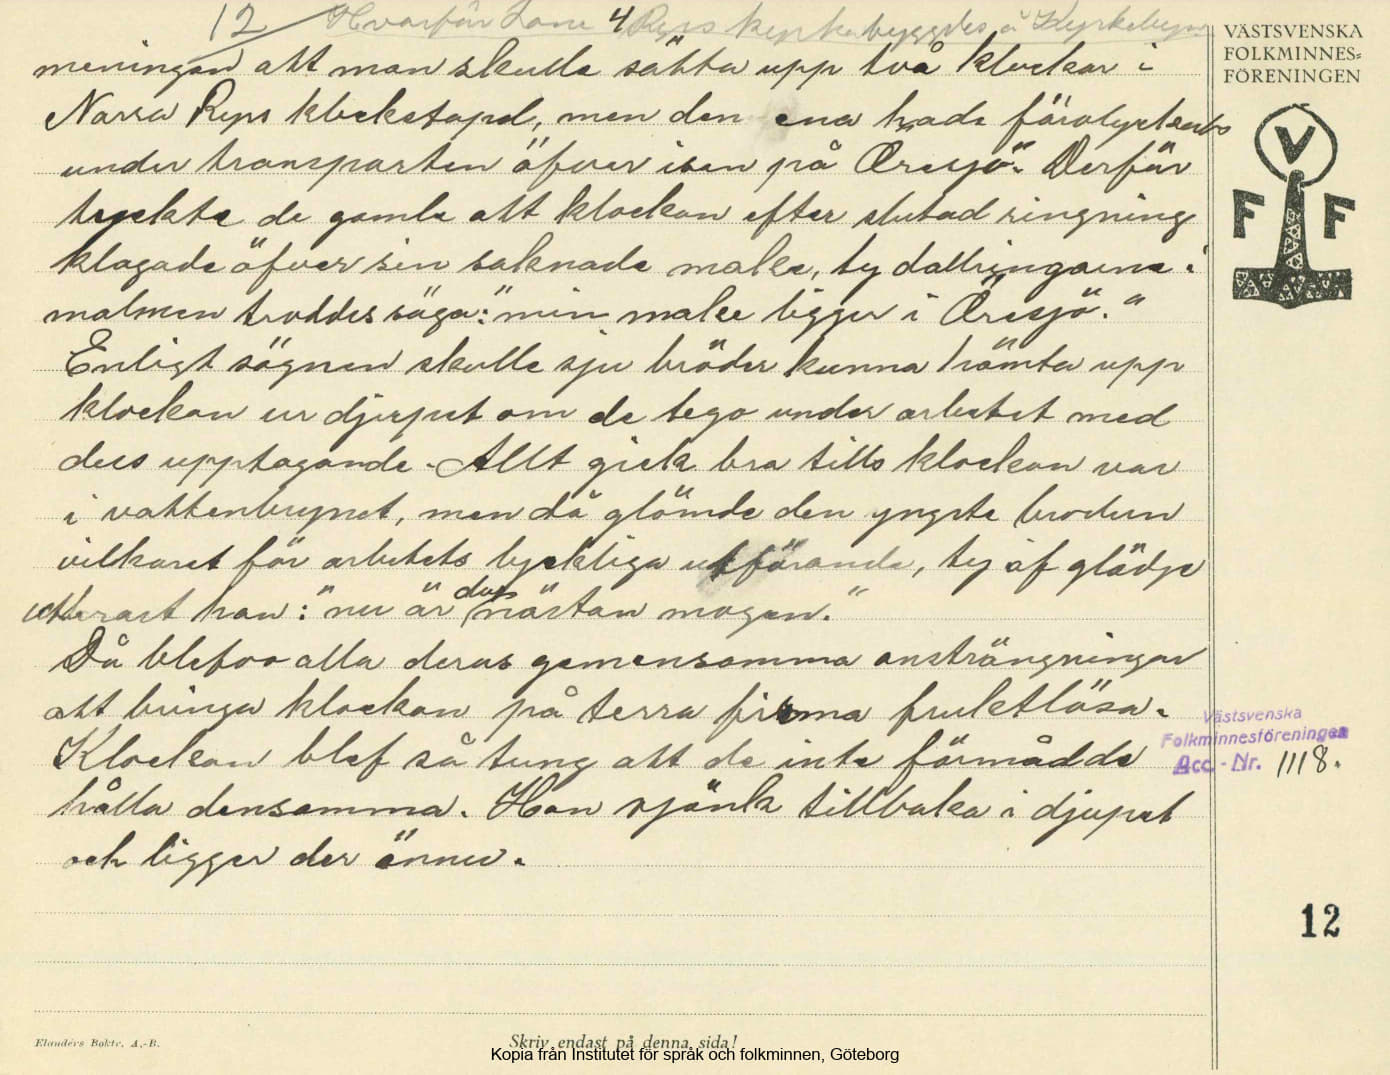 12 Hvarför Lane Ryrs kyrka byggdes å Kyrkebyns
4
meningen att man skulle sätta upp två klockor i
Norra Ryrs klockstapel, men den ena hade förolyckats
under transporten öfver isen på Öresjö. Derför
tyckte de gamle att klockan efter slutad ringning
klagade öfver sin saknade make, ty dallringarne i
malmen troddes säga: "min make ligger i Öresjö."
Enligt sägnen skulle sju bröder kunna hämta upp
klockan ur djupet om de tego under arbetet med
dess upptagande. Allt gick bra tills klockan var
i vattenbrynet, men då glömde den yngste brodern
vilkoret för arbetets lyckliga utförande, ty af glädje
utbrast han: "nu är den nästan mogen."
Då blefvo alla deras gemensamma ansträngningar
att bringa klockan på terra firma fruktlösa.
Klockan blef så tung att de inte förmådde
hålla densamma. Hon sjönk tillbaka i djupet
och ligger der ännu.
VÄSTSVENSKA
FOLKMINNES=
FÖRENINGEN
V
F F
Västsvenska
Folkminnesföreningen
Acc.-Nr. 1118.
12
Elanders Boktr. A.-B.
Skriv endast på denna sida!
Kopia från Institutet för språk och folkminnen, Göteborg